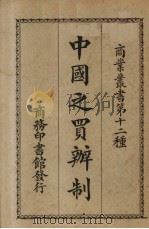 商業叢書第十二種
中國之買辦制
上海商務印書館發行